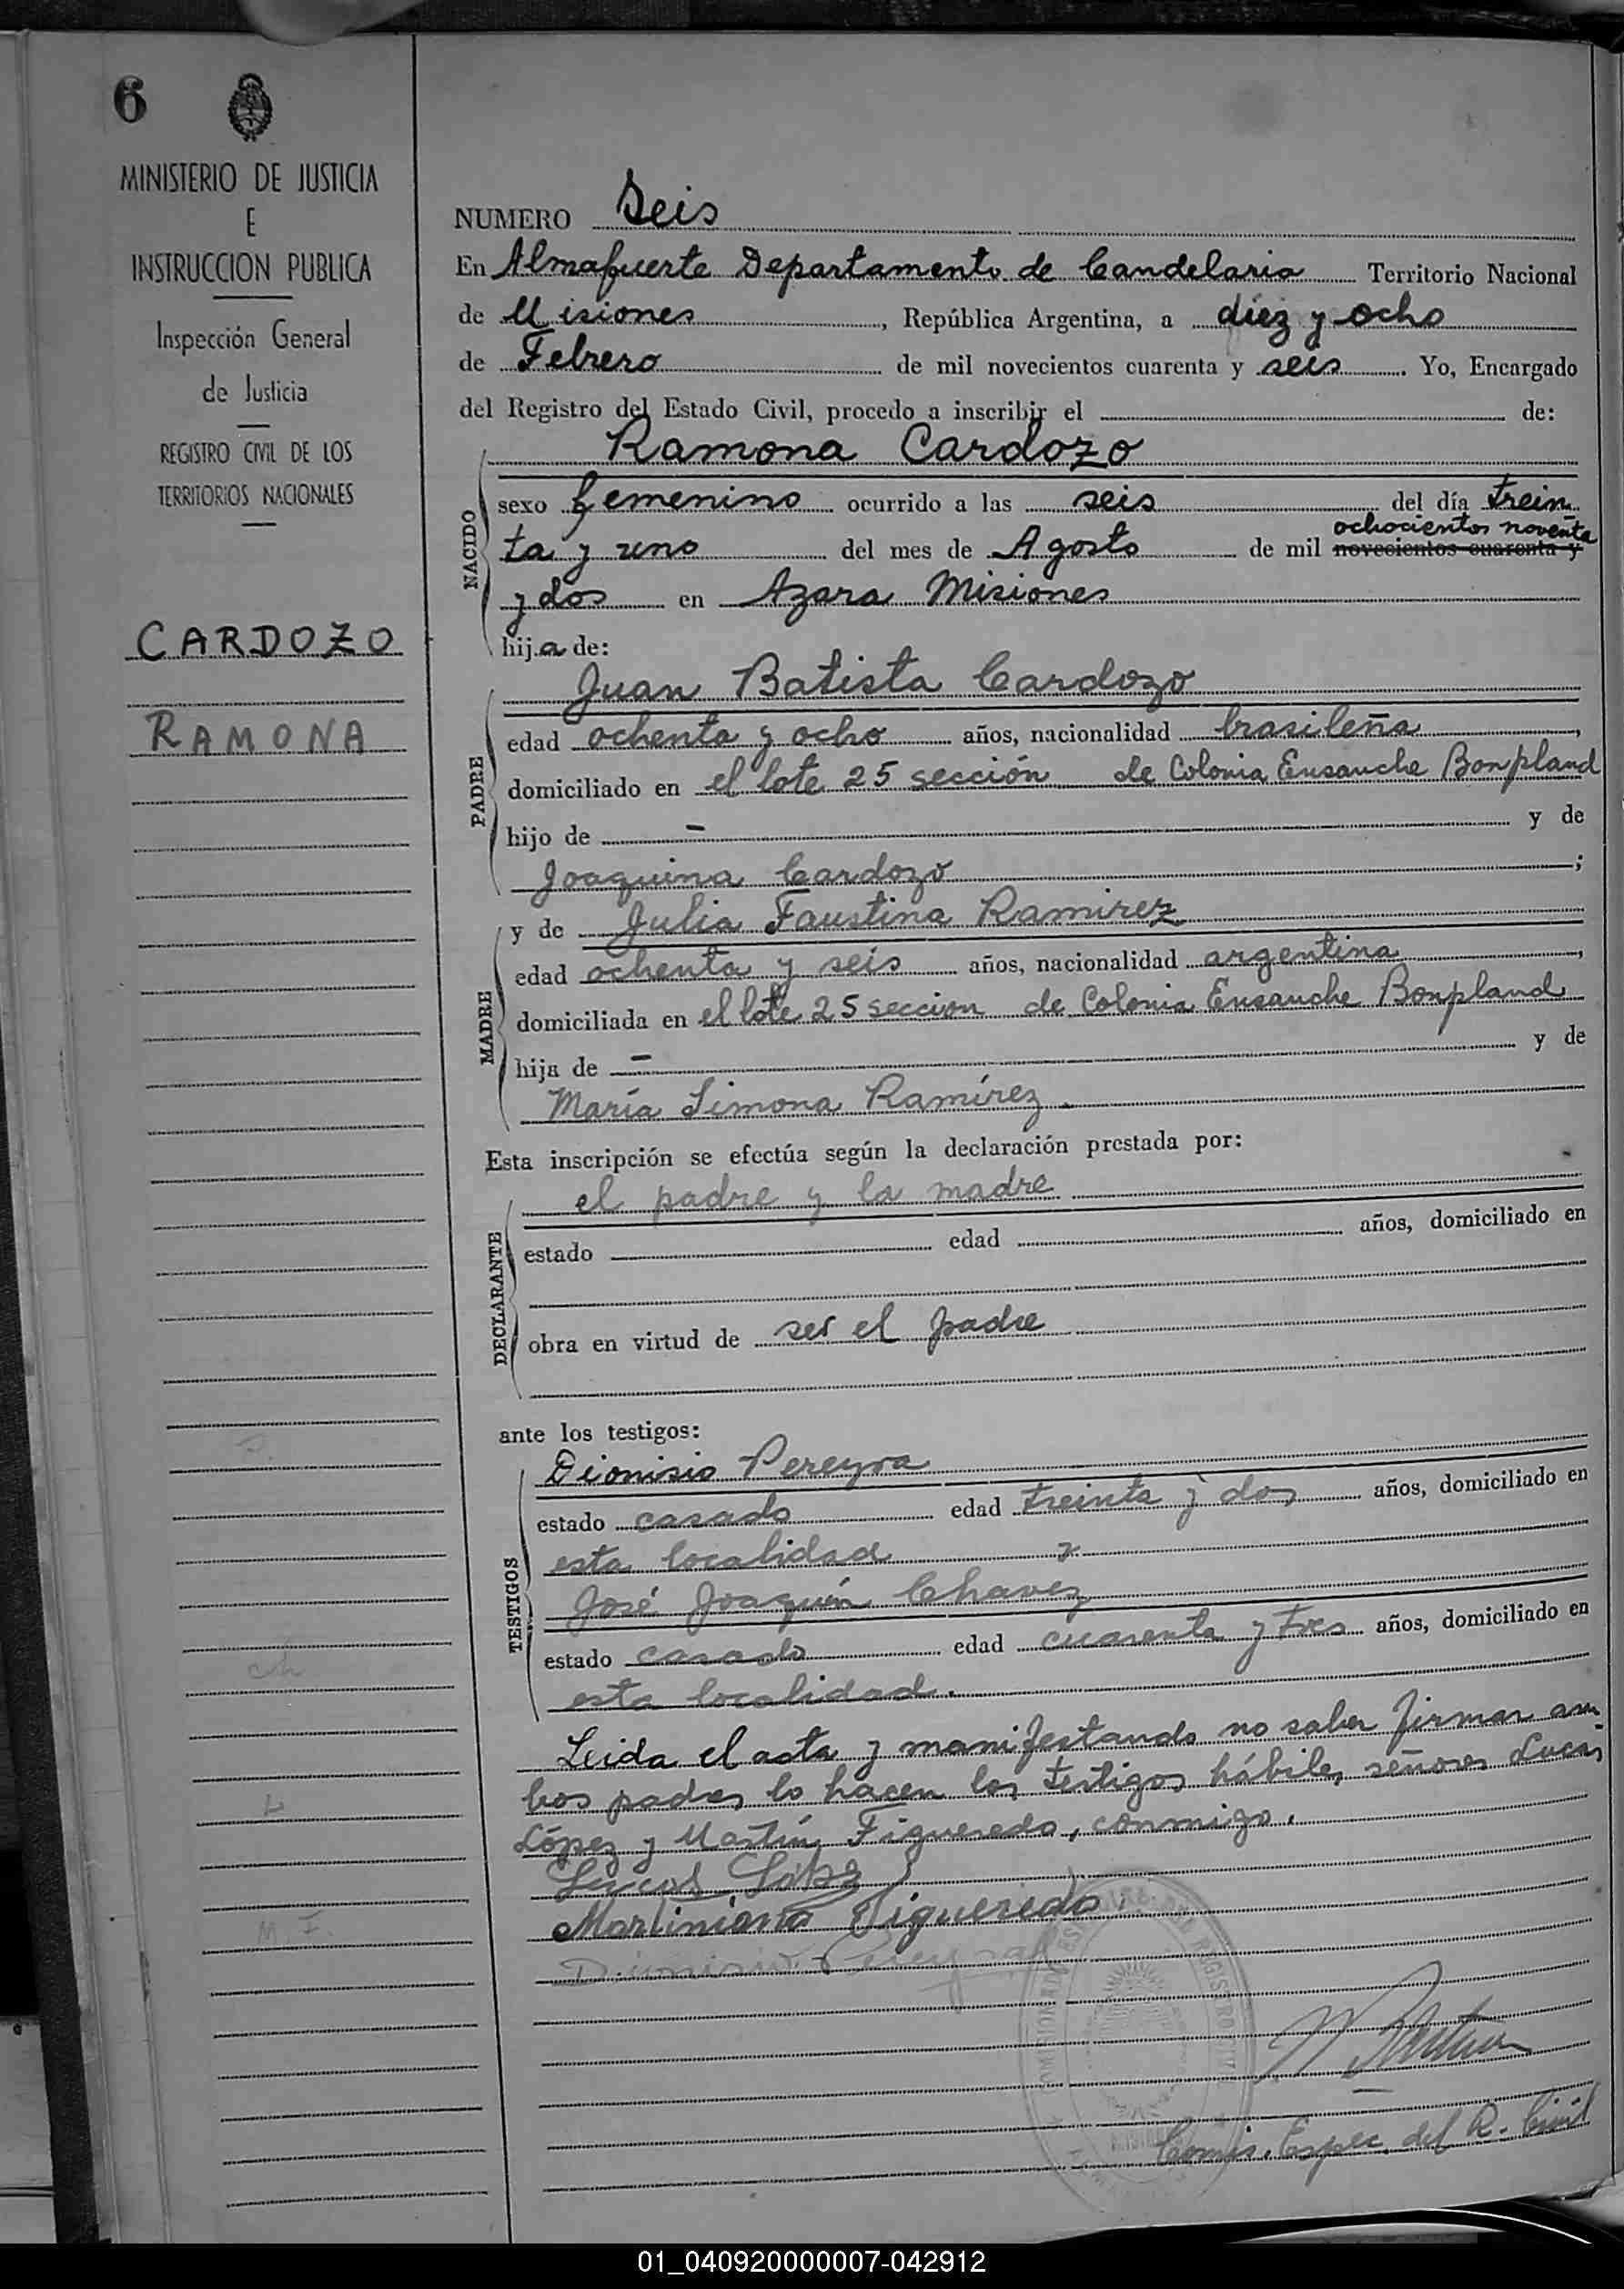 6
MINISTERIO DE JUSTICIA
E
INSTRUCCION PUBLICA
Inspección General
de Justicia
REGISTRO CIVIL DE LOS
TERRITORIOS NACIONALES
CARDOZO
RAMONA
NUMERO Seis
En Almafuerte Departamento de Candelaria Territorio Nacional
de Misiones, República Argentina, a diez y ocho
de Febrero de mil novecientos cuarenta y seis. Yo, Encargado
del Registro del Estado Civil, procedo a inscribir el de:
Ramona Cardozo
NACIDO
sexo femenino ocurrido a las seis del día trein
ochocientos noventa
ta y uno del mes de Agosto de mil novecientos cuarenta y
y dos en Azara Misiones
hija de:
Juan Batista Cardozo
PADRE
edad ochenta y ocho años, nacionalidad brasileña,
domiciliado en el lote 25 sección de Colonia Ensanche Bonpland
hijo de — y de
Joaquina Cardozo;
y de Julia Faustina Ramirez
MADRE
edad ochenta y seis años, nacionalidad argentina,
domiciliada en el lote 25 seccion de Colonia Ensanche Bonpland
hija de — y de
María Simona Ramírez.
Esta inscripción se efectúa según la declaración prestada por:
el padre y la madre
DECLARANTE
estado edad años, domiciliado en
obra en virtud de ser el padre
ante los testigos:
Dionisio Pereyra
TESTIGOS
estado casado edad treinta y dos años, domiciliado en
esta localidad y
José Joaquín Chavez
estado casado edad cuarenta y tres años, domiciliado en
esta localidad.
Leida el acta y manifestando no saber firmar am
bos padres lo hacen los testigos hábiles señores Lucas
López y Martín Figueredo, conmigo.
Lucas López
Martiniano Figueredo
Dionisio Pereyra
Comis. Espec. del R. Civil
M. F.
01_040920000007-042912